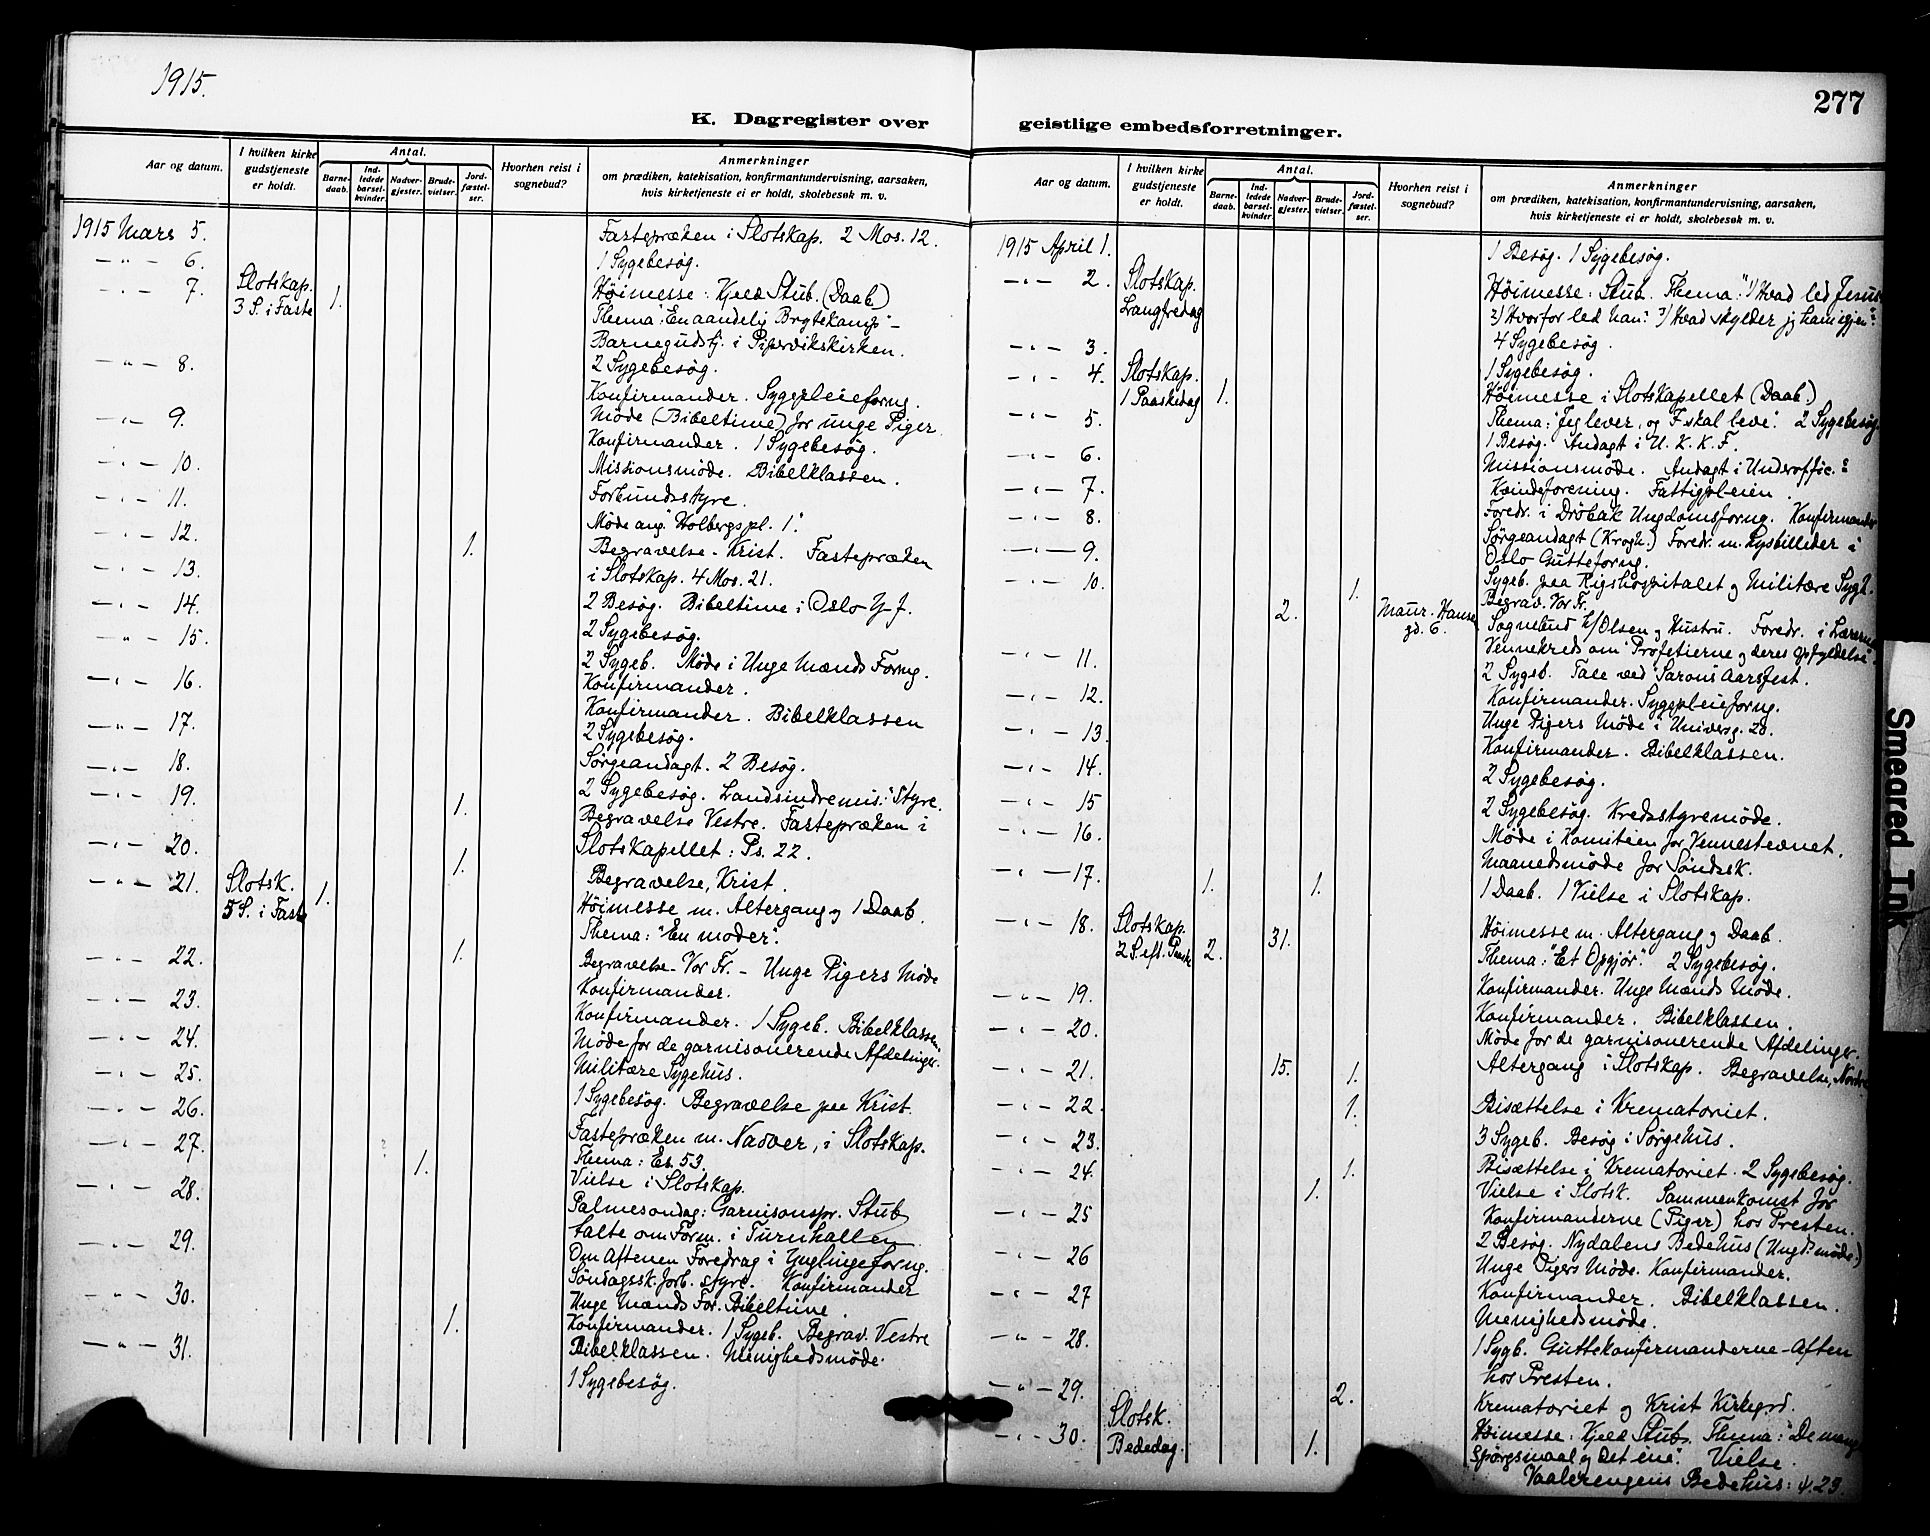 1915.
277
K. Dagregister over geistlige embedsforretninger.
Aar og datum.
I hvilken kirke gudstjeneste er holdt.
Antal.
Barnedaab.
Indledede barselkvinder.
Nadvergjester.
Brudevielser.
Jordfæstelser.
Hvorhen reist i sognebud?
Anmerkninger
om prædiken, katekisation, konfirmantundervisning, aarsaken,
hvis kirketjeneste ei er holdt, skolebesøk m. v.
1915 Mars 5. Fastepræken i Slotskap. 2 Mos. 12.
— " — 6. 1 Sygebesøg.
— " — 7. Slotskap. 1. Höimesse: Kjeld Stub. (Daab)
3 S. i Faste Thema: "En aandelig Brytekamp" —
Barnegudstj. i Pipervikskirken.
— " — 8. 2 Sygebesøg.
Konfirmander. Sygepleieforng.
— " — 9. Møde (Bibeltime) for unge Piger
Konfirmander. 1 Sygebesøg.
— " — 10. Missionsmøde. Bibelklassen.
— " — 11. Forbundsstyre.
Møde ang. "Holbergspl. 1."
— " — 12. 1. Begravelse - Krist. Fastepræken
— " — 13. i Slotskap. 4 Mos. 21.
— " — 14. 2 Besøg. Bibeltime i Oslo Y. f.
— " — 15. 2 Sygebesøg.
2 Sygeb. Møde i Unge Mænds Forng.
— " — 16. Konfirmander.
— " — 17. Konfirmander. Bibelklassen
2 Sygebesøg.
— " — 18. Sørgeandagt. 2 Besøg.
— " — 19. 1. 2 Sygebesøg. Landsindremis: Styre.
Begravelse Vestre. Fastepræken i
— " — 20. 1. Slotskapellet: Ps. 22.
— " — 21. Slotsk. 1. Begravelse, Krist.
5 S. i Faste Höimesse m. Altergang og 1 Daab.
Thema: "En moder".
— " — 22. 1. Begravelse - Vor Fr. - Unge Pigers Møde
— " — 23. Konfirmander.
Konfirmander. 1 Sygeb. Bibelklassen
— " — 24. Møde for de garnisonerende Afdelinger.
— " — 25. Militære Sygehus.
— " — 26. 1 Sygebesøg. Begravelse paa Krist.
— " — 27. 1. Fastepræken m. Nadver, i Slotskap.
Thema: Es. 53.
— " — 28. Vielse i Slotskap.
Palmesöndag: Garnisonspr. Stub
— " — 29. talte om Form. i Turnhallen
Om Aftenen Foredrag i Ynglingeforng.
Söndagssk.forb. styre. Konfirmander
— " — 30. Unge Mænds For. Bibeltime.
1. Konfirmander. 1 Sygeb. Begrav. Vestre
— " — 31. Bibelklassen. Menighedsmøde.
1 Sygebesøg.
Aar og datum.
I hvilken kirke gudstjeneste er holdt.
Antal.
Barnedaab.
Indledede barselkvinder.
Nadvergjester.
Brudevielser.
Jordfæstelser.
Hvorhen reist i sognebud?
Anmerkninger
om prædiken, katekisation, konfirmantundervisning, aarsaken,
hvis kirketjeneste ei er holdt, skolebesøk m. v.
1915 April 1. 1 Besøg. 1 Sygebesøg.
— " — 2. Slotskap. Höimesse: Stub. Thema: "1) Hvad led Jesus
Langfredag 2) Hvorfor led han: 3) Hvad skylder jeg ham igjen":
— " — 3. 4 Sygebesøg.
— " — 4. Slotskap. 1 Sygebesøg.
1 Paaskedag 1. Höimesse i Slotskapellet (Daab.)
— " — 5. Thema: "Jeg lever, og I skal leve". 2 Sygebesøg
1 Besøg. Andagt i U. K. K. F.
— " — 6. Missionsmøde. Andagt i Underoffic.
— " — 7. Kvindeforening. Fattigpleien.
— " — 8. Foredr. i Dröbak Ungdomsforng. Konfirmander
— " — 9. Sørgeandagt (Krogh.) Foredr. m. Lysbilleder i
Oslo Gutteforng.
— " — 10. 1. Sygeb. paa Rigshospitalet og Militære Sygh.
Begrav. Vor Fr.
2. Maur. Hansens gd. 6. Sognebud h/ Olsen og Hustru. Foredr. i Lærernes
— " — 11. Vennekreds om "Profetierne og deres opfyldelse".
2 Sygeb. Tale ved "Sarons Aarsfest.
— " — 12. Konfirmander. Sygepleieforng.
— " — 13. Unge Pigers Møde i Universg. 20.
Konfirmander. Bibelklassen.
— " — 14. 2 Sygebesøg.
— " — 15 2 Sygebesøg. Kredsstyremøde.
— " — 16. Møde i Komiteen for Vennestevnet.
Maanedsmøde for Söndssk.
— " — 17. 1. 1. 1 Daab. 1 Vielse i Slotskap.
— " — 18. Slotskap. 31. Höimesse m. Altergang og Daab.
2 S. eft. Paaske 2. Thema: "Et Opgjör." 2 Sygebesøg.
— " — 19. Konfirmander. Unge Mænds Møde.
— " — 20. Konfirmander. Bibelklassen.
Møde for de garnisonerende Afdelinger.
— " — 21. 15. 1. Altergang i Slotskap. Begravelse, Nordre
— " — 22. 1. Bisættelse i Krematoriet.
— " — 23. 3 Sygeb. Besøg i Sørgehus.
— " — 24. 1. Bisættelse i Krematoriet. 2 Sygebesøg.
1. Vielse i Slotsk. Sammenkomst for
— " — 25 Konfirmanderne (Piger) hos Presten.
2 Besøg. Nydalens Bedehus (Ungd.møde.)
— " — 26 Unge Pigers Møde. Konfirmander.
— " — 27 Konfirmander. Bibelklassen.
Menighedsmøde.
— " — 28. 1 Sygb. Guttekonfirmanderne - Aften
hos Presten.
— " — 29. 2. Krematoriet og Krist Kirkegrd.
Slotsk. Höimesse: Kjeld Stub. Thema: "De mange
— " — 30. Bededag. 1. Spörgsmaal og det ene". Vielse.
Vaalerengens Bedehus: 4.23.
Smeared Ink